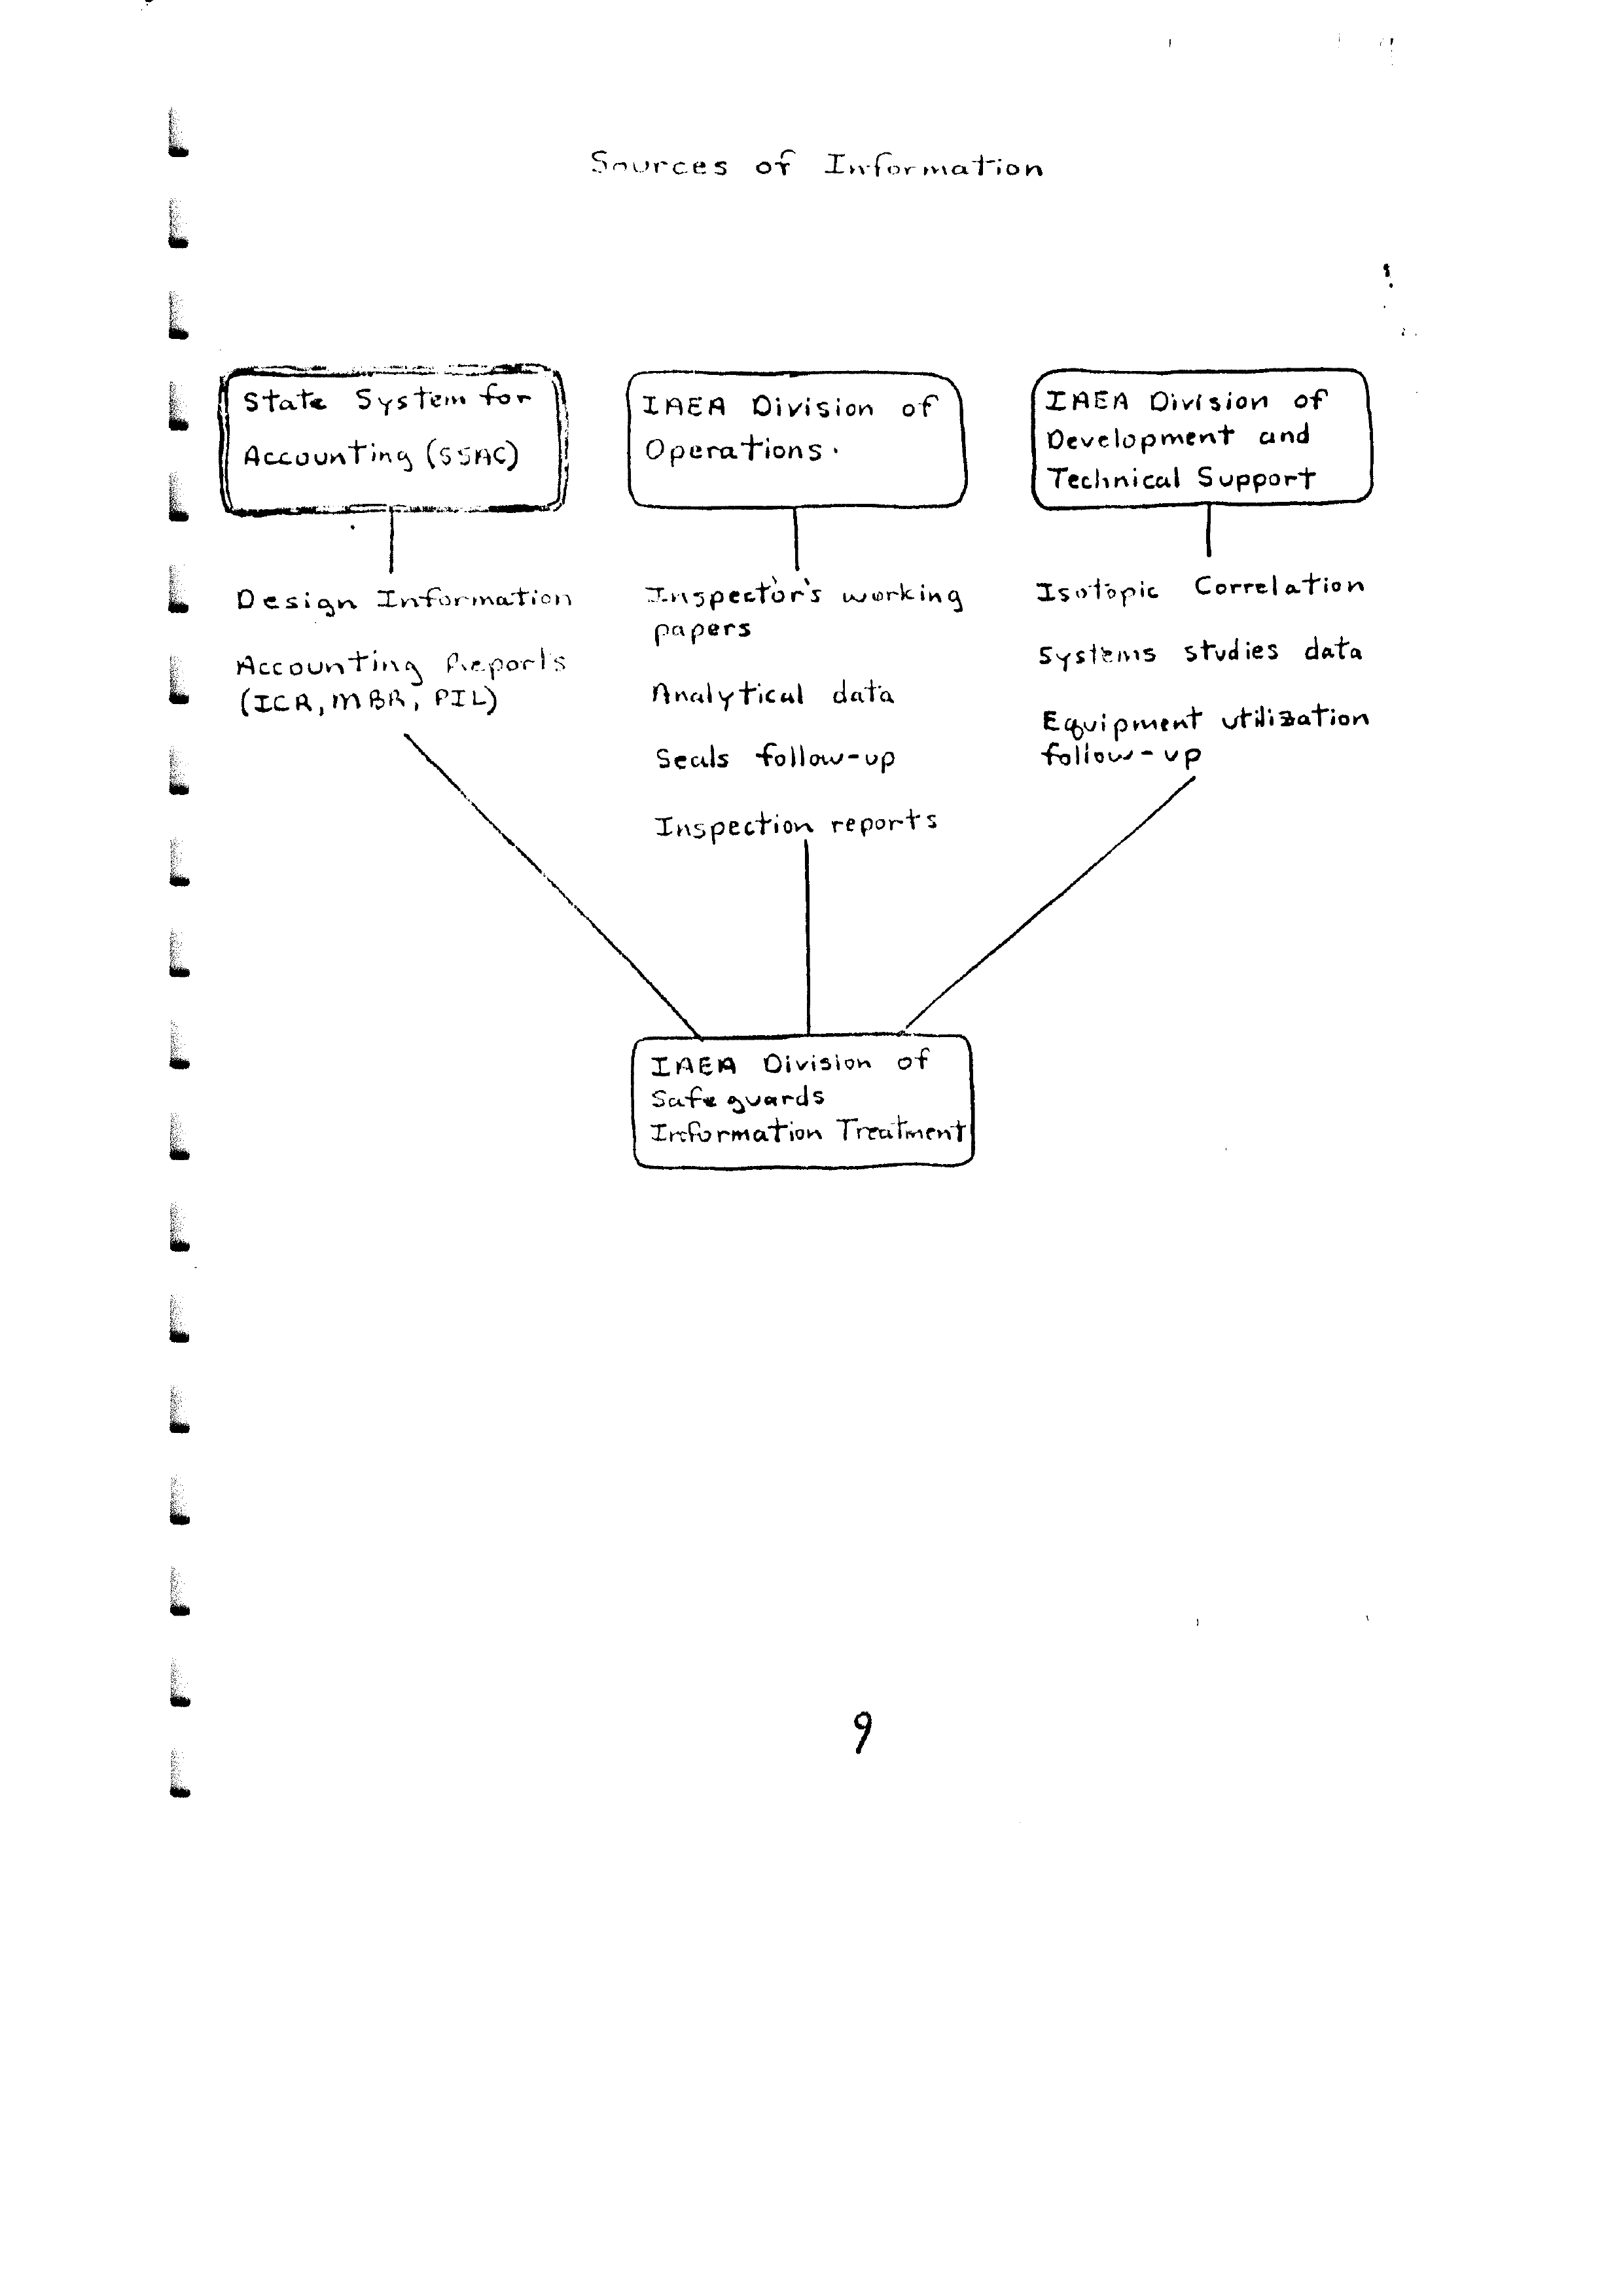 Sources of Information
State System for
Accounting (SSAC)
Design Information
Accounting Reports
(ICR, MBR, PIL)
IAEA Division of
Operations.
Inspector's working
papers
Analytical data
Seals follow-up
Inspection reports
IAEA Division of
Development and
Technical Support
Isotopic Correlation
Systems studies data
Equipment utilization
follow-up
IAEA Division of
Safeguards
Information Treatment
9